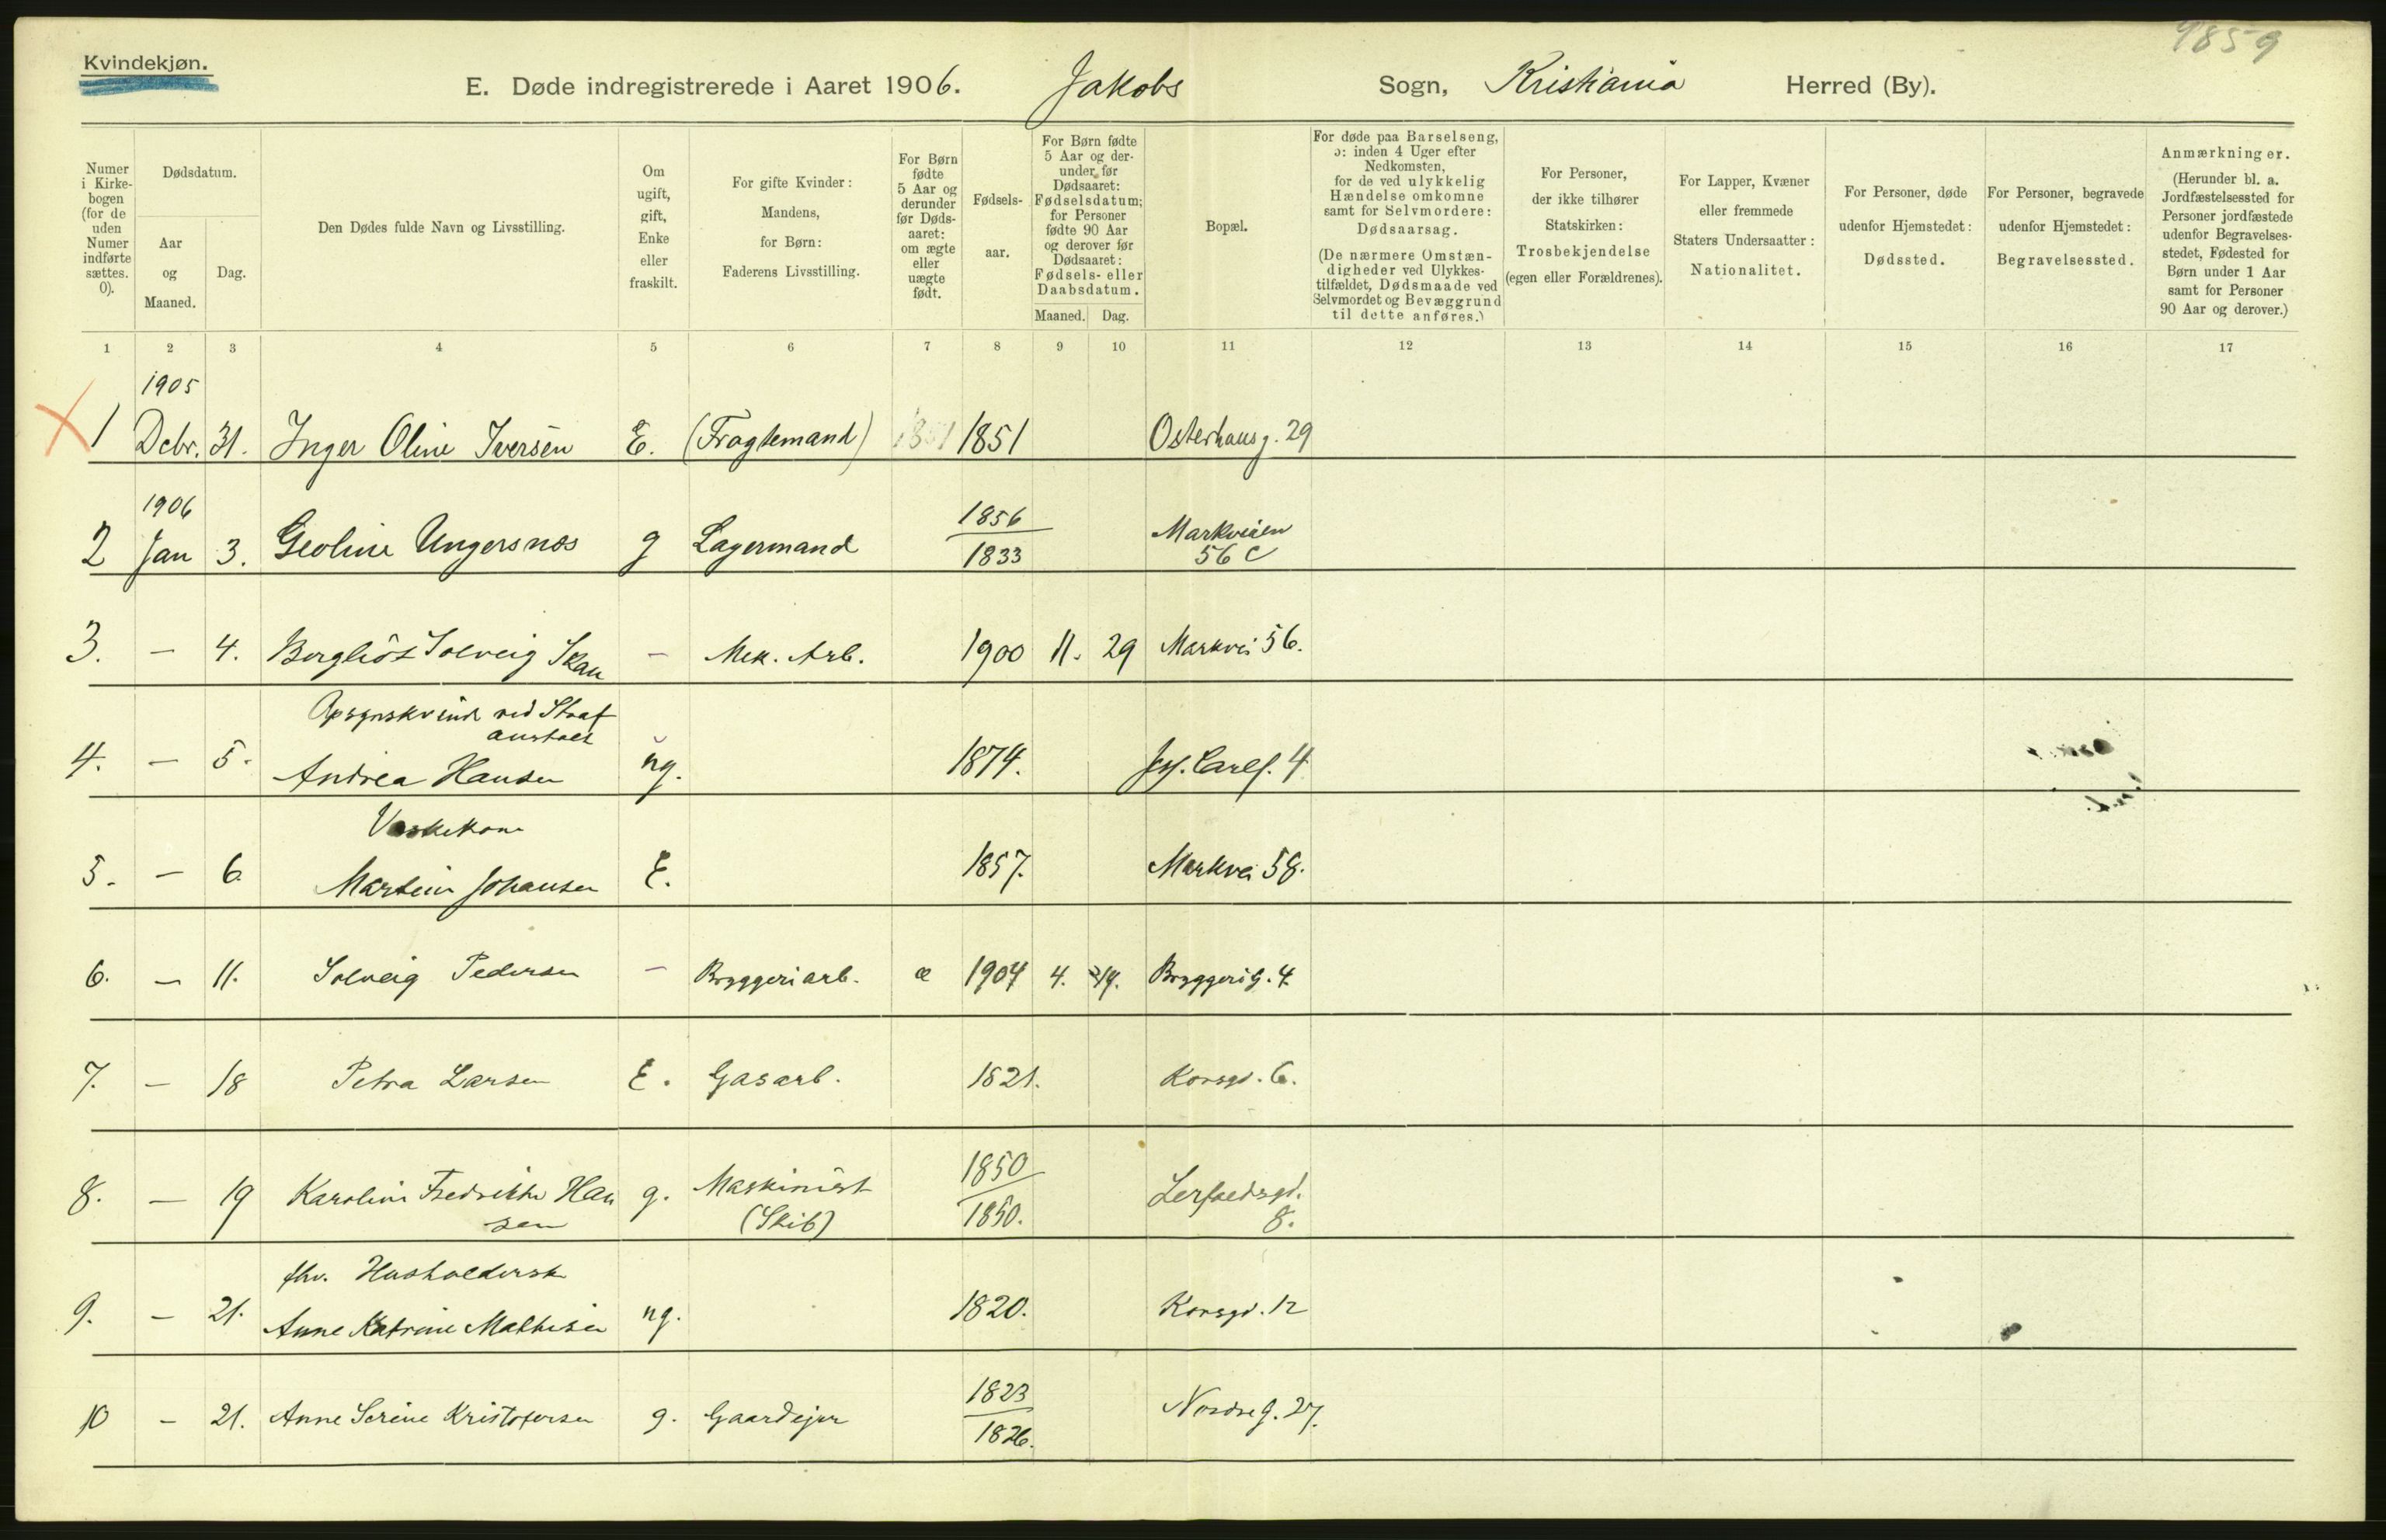 9859
Kvindekjøn.
E. Døde indregistrerede i Aaret 1906. Jakobs Sogn, Kristiania Herred (By).
Numer i Kirkebogen (for de uden Numer indførte sættes. 0).
Dødsdatum.
Aar og Maaned.
Dag.
Den Dødes fulde Navn og Livsstilling.
Om ugift, gift, Enke eller fraskilt.
For gifte Kvinder: Mandens, for Børn: Faderens Livsstilling.
For Børn fødte 5 Aar og derunder før Dødsaaret: om ægte eller uægte født.
Fødselsaar.
For Børn fødte 5 Aar og derunder før Dødsaaret: Fødselsdatum; for Personer fødte 90 Aar og derover før Dødsaaret: Fødsels- eller Daabsdatum.
Maaned. Dag.
Bopæl.
For døde paa Barselseng, ɔ: inden 4 Uger efter Nedkomsten, for de ved ulykkelig Hændelse omkomne samt for Selvmordere: Dødsaarsag.
(De nærmere Omstændigheder ved Ulykkestilfældet, Dødsmaade ved Selvmordet og Bevæggrund til dette anføres.)
For Personer, der ikke tilhører Statskirken: Trosbekjendelse (egen eller Forældrenes).
For Lapper, Kvæner eller fremmede Staters Undersaatter: Nationalitet.
For Personer, døde udenfor Hjemstedet: Dødssted.
For Personer, begravede udenfor Hjemstedet: Begravelsessted.
Anmærkninger.
(Herunder bl. a. Jordfæstelsessted for Personer jordfæstede udenfor Begravelsesstedet, Fødested for Børn under 1 Aar samt for Personer 90 Aar og derover.)
1 2 3 4 5 6 7 8 9 10 11 12 13 14 15 16 17
1905
1 Debr. 31. Inger Oline Iversen E. (Fragtemand) 1851 1851 Osterhausg. 29
1906 1856
2 Jan 3. Geoline Ungersnæs g Lagermand 1833 Markveien
56 C
3. — 4. Bergliot Solveig Skau — Mek. Arb. 1900 11. 29 Markvei 56.
Opsynskvinde ved Straf
anstalt
4. — 5. Andrea Hansen ug. 1874. 4
Vaskekone
5. — 6. Martin Johansen E. 1857. Markvei 58.
6. — 11. Solveig Pedersen — Bryggeriarb. æ 1904 4. Bryggerig. 4
7. — 18 Petra Larsen E. Gasarb. 1821. Korsgd. 6.
1850
8. — 19 Karoline Fredrikke Han g. Maskinist 1850. Lerfaldsgd.
sen (Skib) 8.
fhv. Husholderske
9. — 21. Anne Katrine Mathisen ug. 1820. Korsgd. 12
1823
10 — 21. Anne Serine Kristofersen g. Gaardejer 1826. Nordre G. 27.